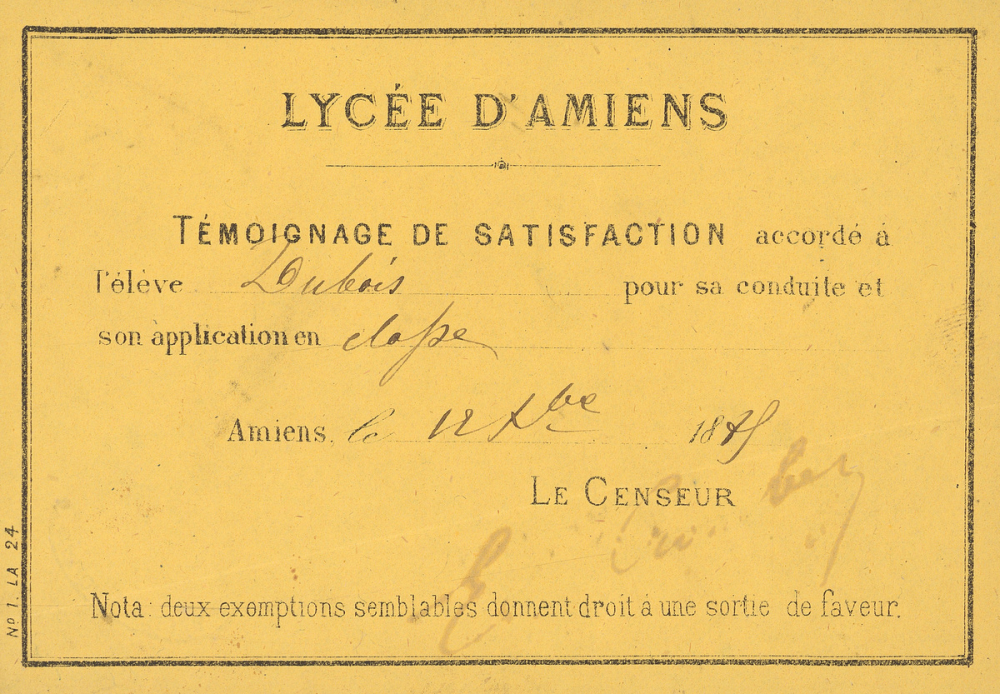 LYCÉE D'AMIENS
TÉMOIGNAGE DE SATISFACTION accordé à
l'élève Dubois pour sa conduite et
son application en classe
Amiens, le 12 Xbre 18
LE CENSEUR
Nota : deux exemptions semblables donnent droit à une sortie de faveur.
Nº 1. LA 24